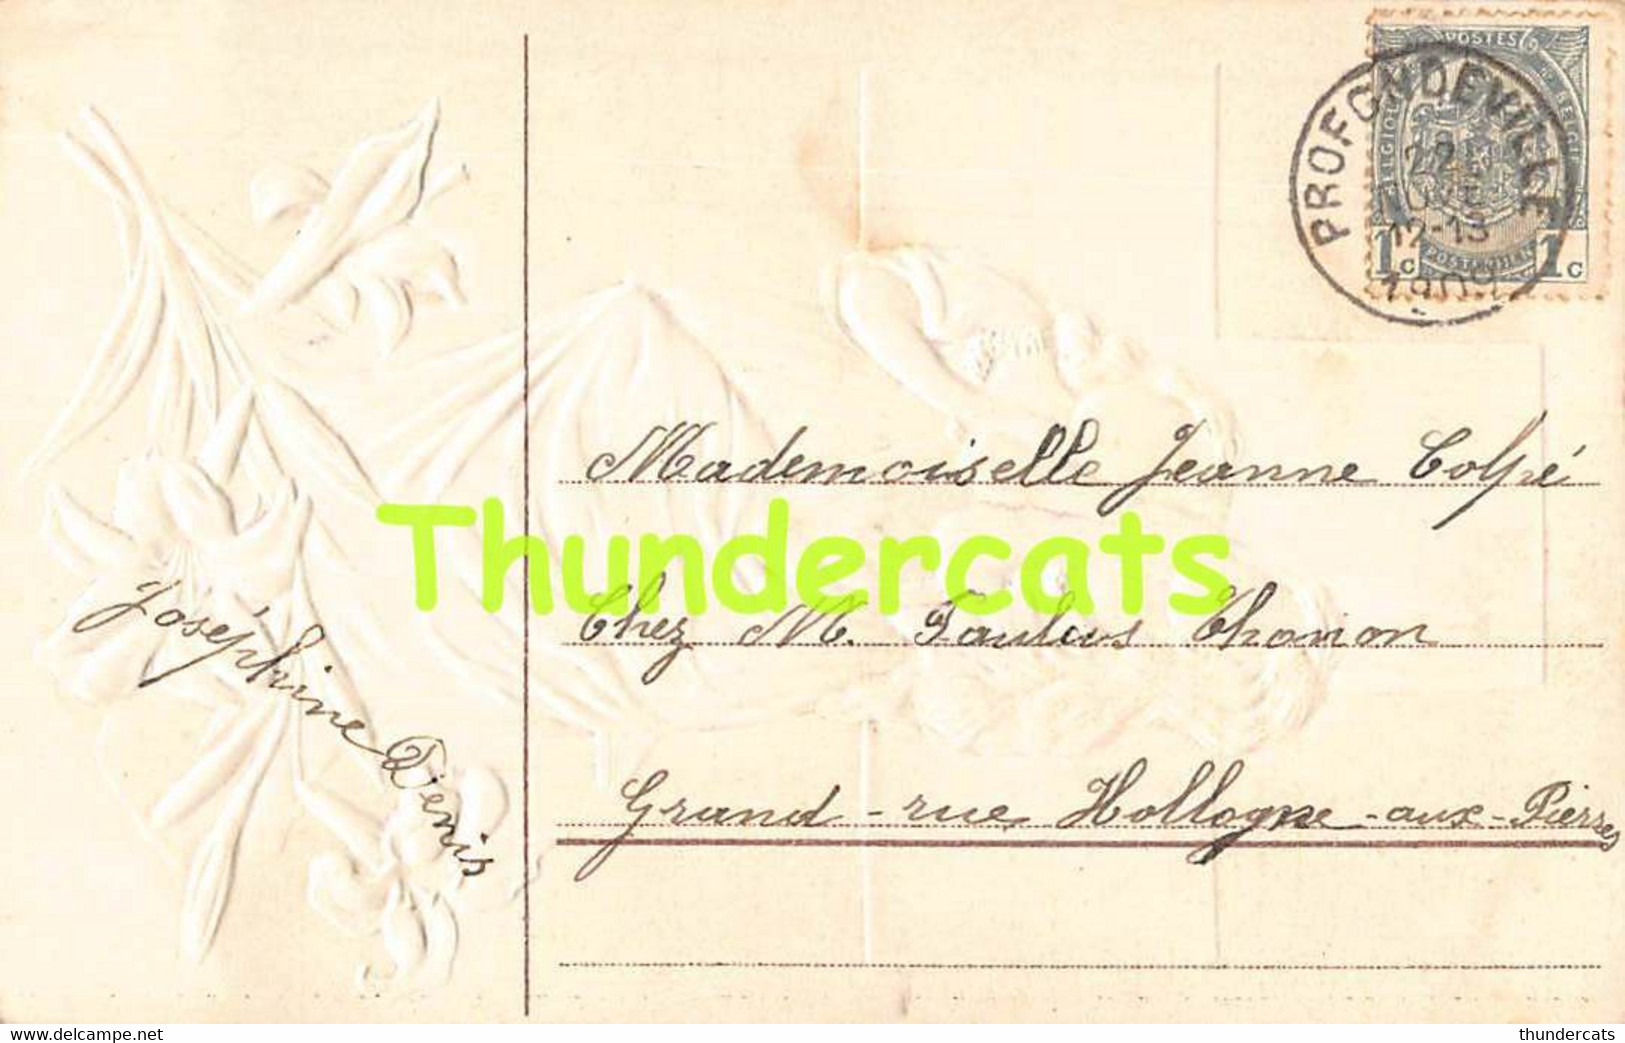 POSTES
PROFONDEVILLE
22
12-13
1909
1 c 1 c
Mademoiselle Jeanne Colpé
Thundercats
Chez M. Paulus Thonon
Joséphine Denis
Grand-rue Hollogne-aux-Pierres
www.delcampe.net
thundercats